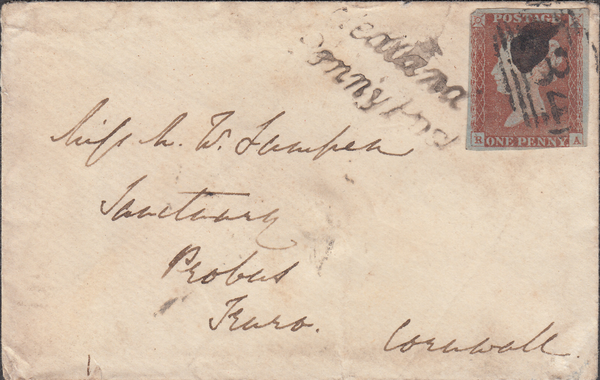 Penny Post
POSTAGE
R A
ONE PENNY
Miss M. W. Lampen
Sanctuary
Probus
Truro.
Cornwall